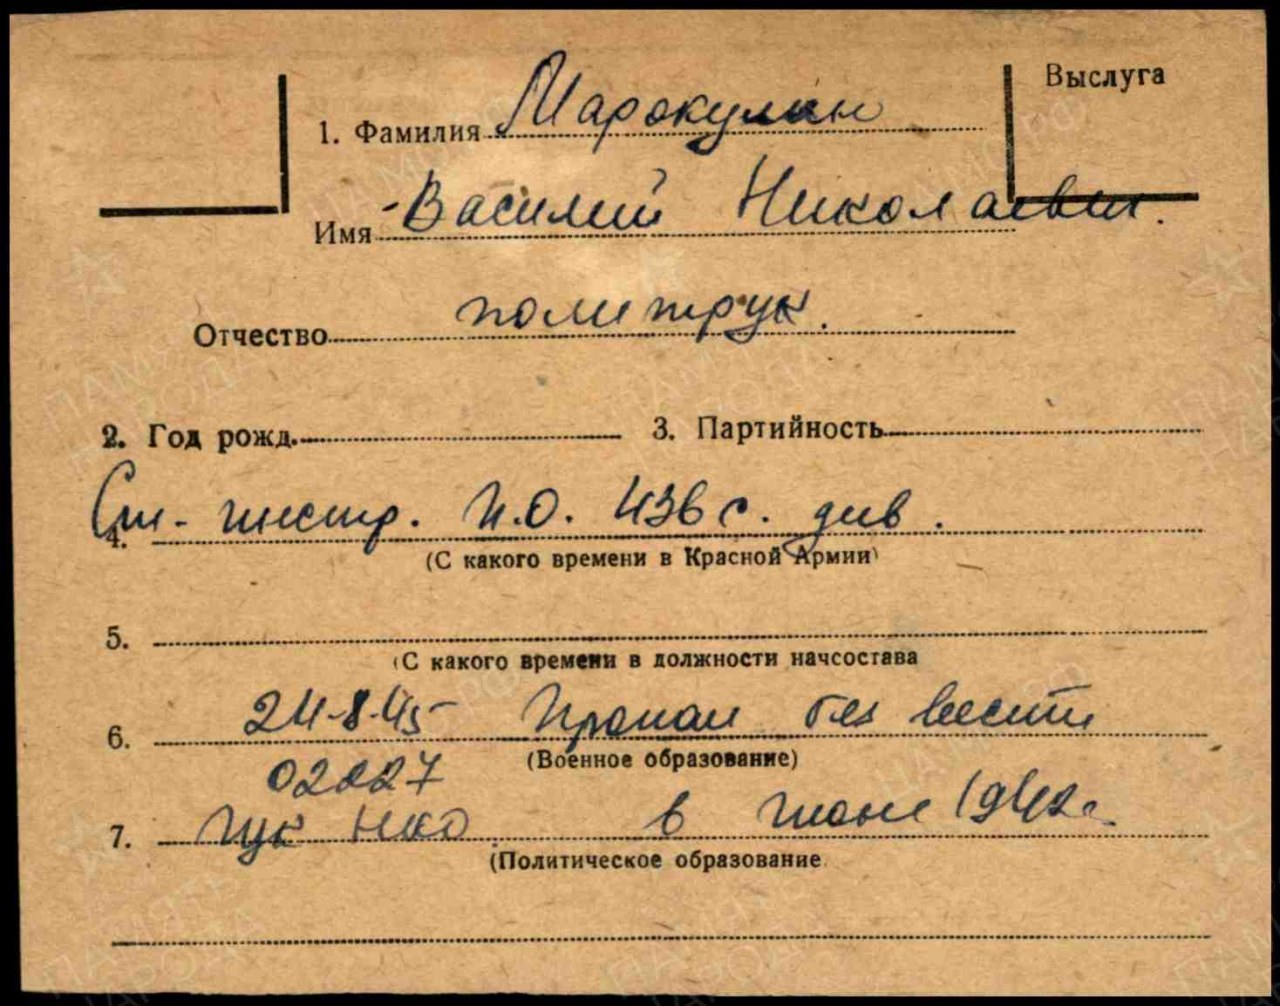 Выслуга
1. Фамилия Марокулин
Имя Василий Николаевич.
Отчество политрук.
2. Год рожд. 3. Партийность
Ст. инстр. П.О. 436 с. див.
4.
(С какого времени в Красной Армии)
5.
(С какого времени в должности начсостава
24-8-45 Пропал без вести
6.
(Военное образование)
02027
7. ГУК НКО в июне 1942 г.
(Политическое образование